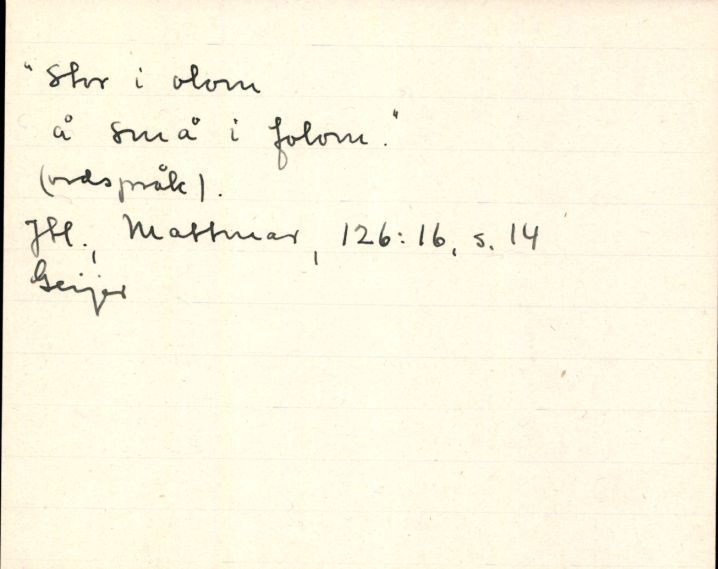 "Stor i olom
å små i folom."
(ordspråk).
Jtl., Mattmar, 126:16, s. 14
Geijer